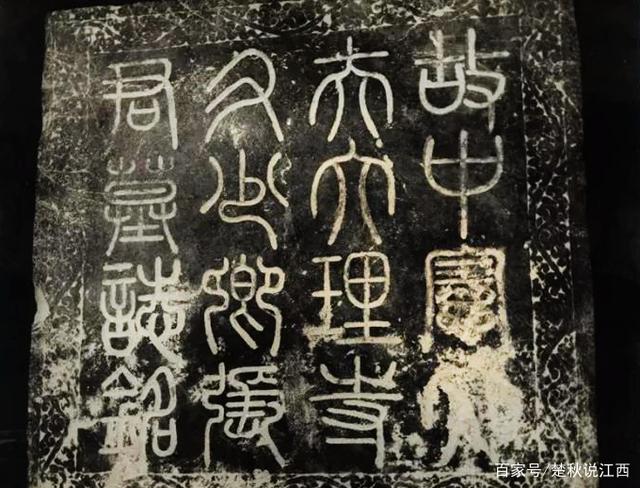 故中憲大
夫大理寺
少卿張
君墓誌銘
百家号/楚秋说江西